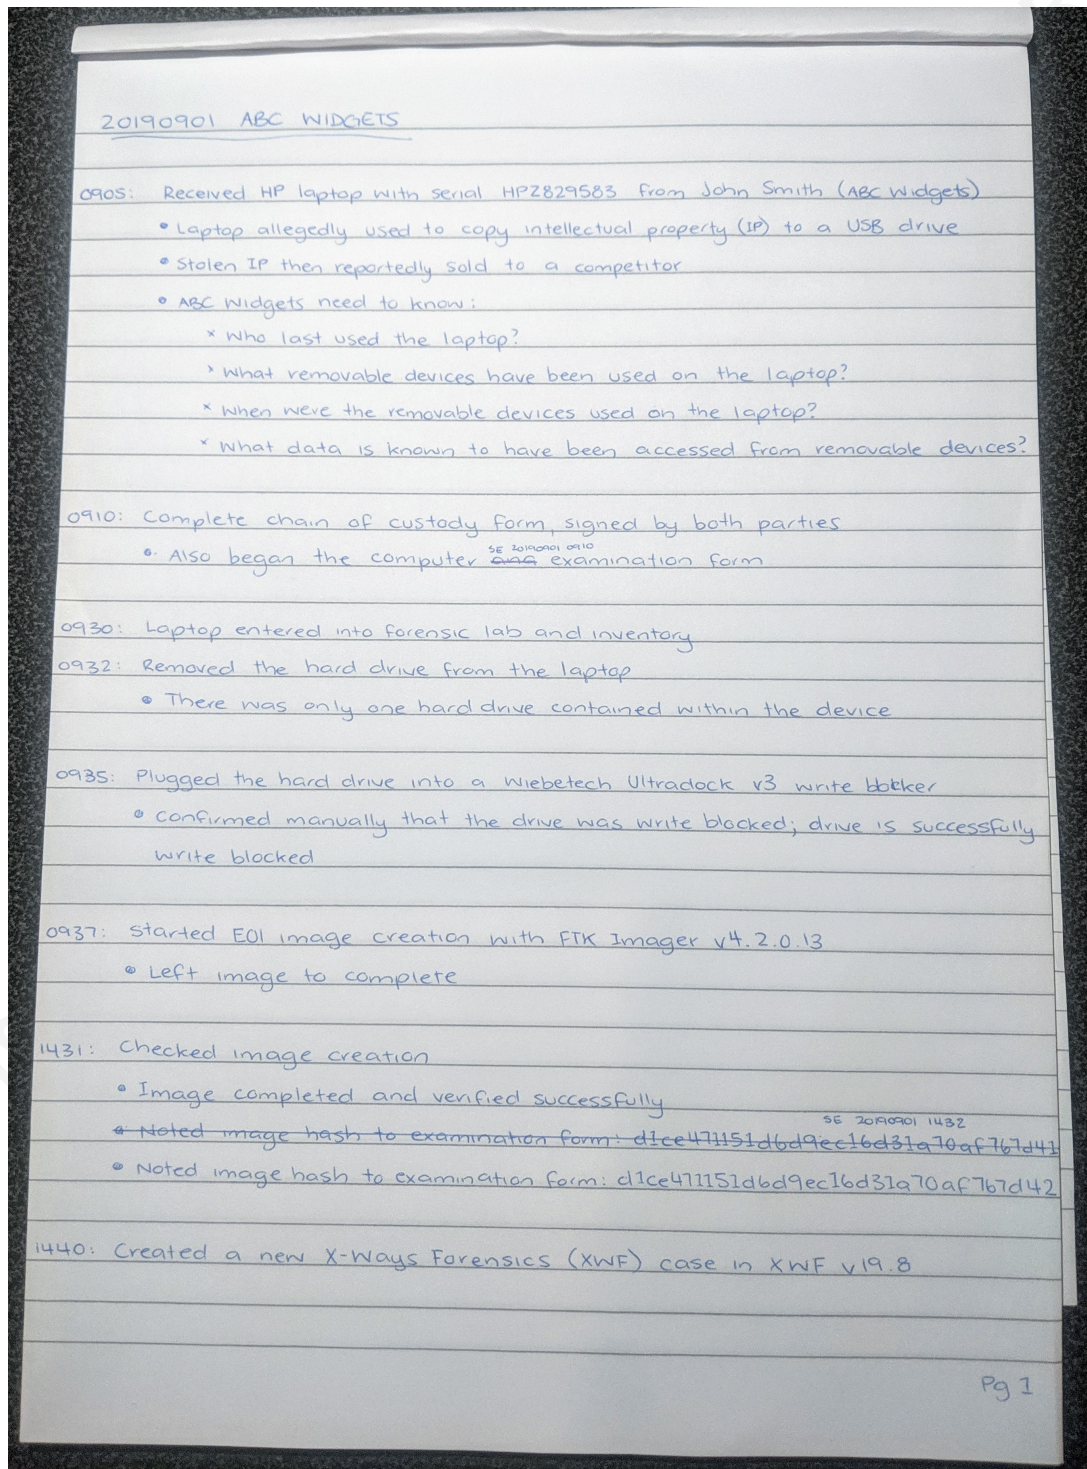 20190901 ABC WIDGETS
0905: Received HP laptop with serial HPZ829583 from John Smith (ABC Widgets)
• Laptop allegedly used to copy intellectual property (IP) to a USB drive
• Stolen IP then reportedly sold to a competitor
• ABC Widgets need to know:
x Who last used the laptop?
x What removable devices have been used on the laptop?
x When were the removable devices used on the laptop?
x What data is known to have been accessed from removable devices?
0910: Complete chain of custody form, signed by both parties
SE 20190901 0910
• Also began the computer examination form
0930: Laptop entered into forensic lab and inventory
0932: Removed the hard drive from the laptop
• There was only one hard drive contained within the device
0935: Plugged the hard drive into a Wiebetech Ultradock v3 write blocker
• Confirmed manually that the drive was write blocked; drive is successfully
write blocked
0937: Started E01 image creation with FTK Imager v4.2.0.13
• Left image to complete
1431: Checked image creation
• Image completed and verified successfully
SE 20190901 1432
• Noted image hash to examination form: d1ce471151d6d9ec16d31a70af767d41
• Noted image hash to examination form: d1ce471151d6d9ec16d31a70af767d42
1440: Created a new X-Ways Forensics (XWF) case in XWF v19.8
Pg 1